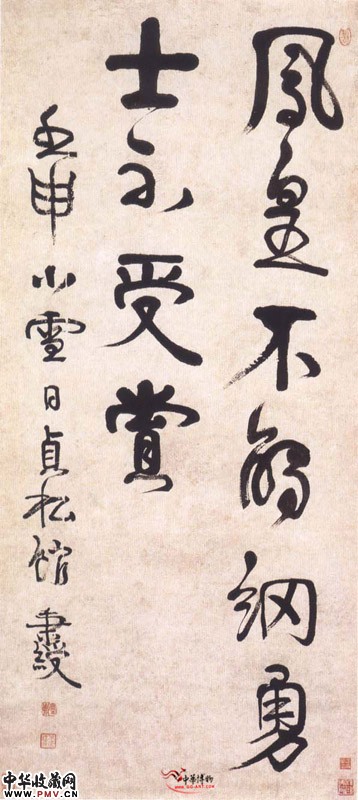 鳳皇不網勇
士不受賞
壬申小雪日貞松館
中華博物
WWW.GG-ART.COM
中华收藏网
WWW.PMV.CN